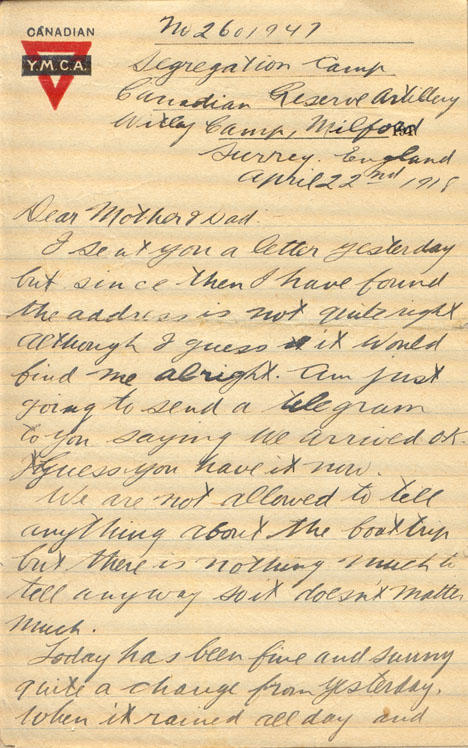 CANADIAN
Y.M.C.A.
No 2601947
Segregation Camp
Canadian Reserve Artillery
Witley Camp, Milford
Surrey. England
April 22nd 1918
Dear Mother & Dad.
I sent you a letter yesterday
but since then I have found
the address is not quite right
although I guess it would
find me alright. Am just
going to send a telegram
to you saying we arrived O.K.
I guess you have it now.
We are not allowed to tell
anything about the boat trip
but there is nothing much to
tell anyway so it doesn't matter
much.
Today has been fine and sunny
quite a change from yesterday.
When it rained all day and